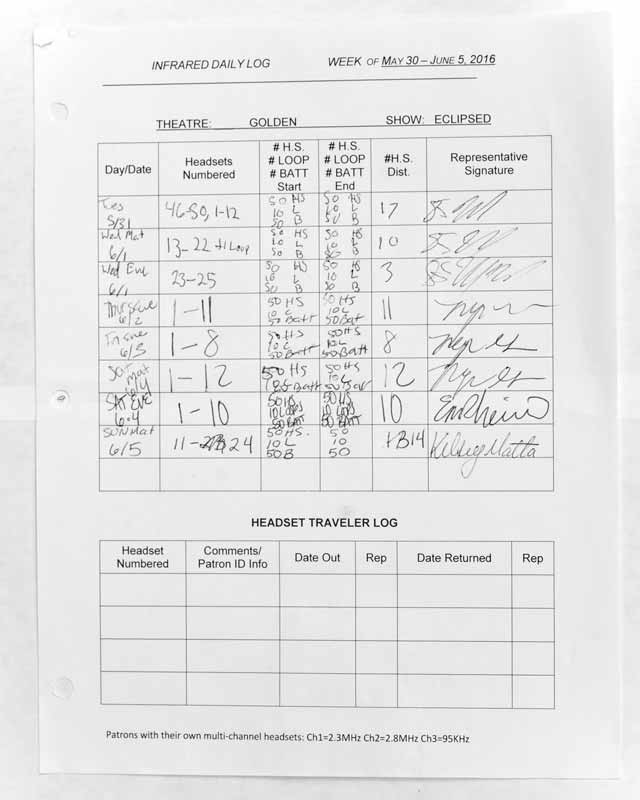 INFRARED DAILY LOG WEEK OF MAY 30 – JUNE 5, 2016
THEATRE: GOLDEN SHOW: ECLIPSED
Day/Date
Headsets
Numbered
# H.S.
# LOOP
# BATT
Start
# H.S.
# LOOP
# BATT
End
#H.S.
Dist.
Representative
Signature
Tues
5/31
46-50, 1-12
50 HS
10 L
50 B
50 HS
10 L
50 B
17
Wed Mat
6/1
13-22 +1 Loop
50 HS
10 L
50 B
50 HS
10 L
50 B
10
Wed Eve
6/1
23-25
50 HS
10 L
50 B
50 HS
10 L
50 B
3
Thurs eve
6/2
1-11
50 HS
10 L
50 Batt
50 HS
10 L
50 Bat
11
6/3
1-8
50 HS
10 L
50 Batt
50 HS
10 L
50 Batt
8
Sat mat
6/4
1-12
50 HS
Batt
50 HS
10 L
50 Bat
12
SAT EVE
6-4
1-10
50 HS
10 LOOPS
50 BATT
50 HS
10 LOOPS
50 BATT
10
SUN Mat
6/5
11-24
50 HS.
10 L
50 B
50
10
50
14
Kelsey Matta
HEADSET TRAVELER LOG
Headset
Numbered
Comments/
Patron ID Info
Date Out
Rep
Date Returned
Rep
Patrons with their own multi-channel headsets: Ch1=2.3MHz Ch2=2.8MHz Ch3=95KHz